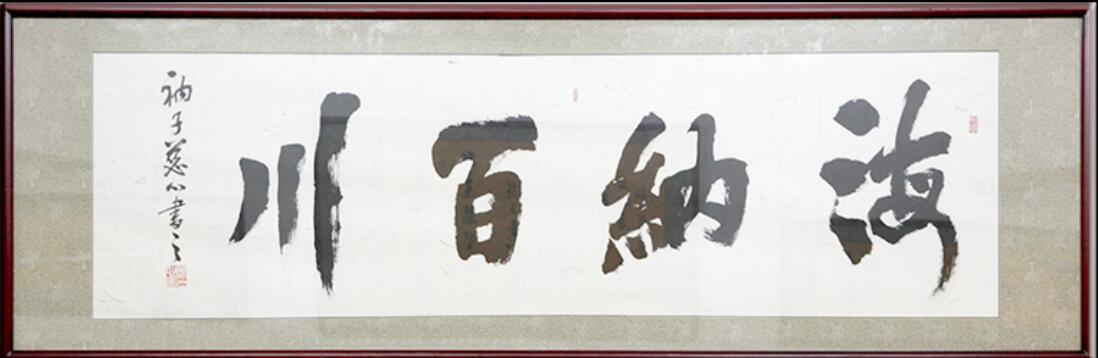 海納百川
衲子慈心書之